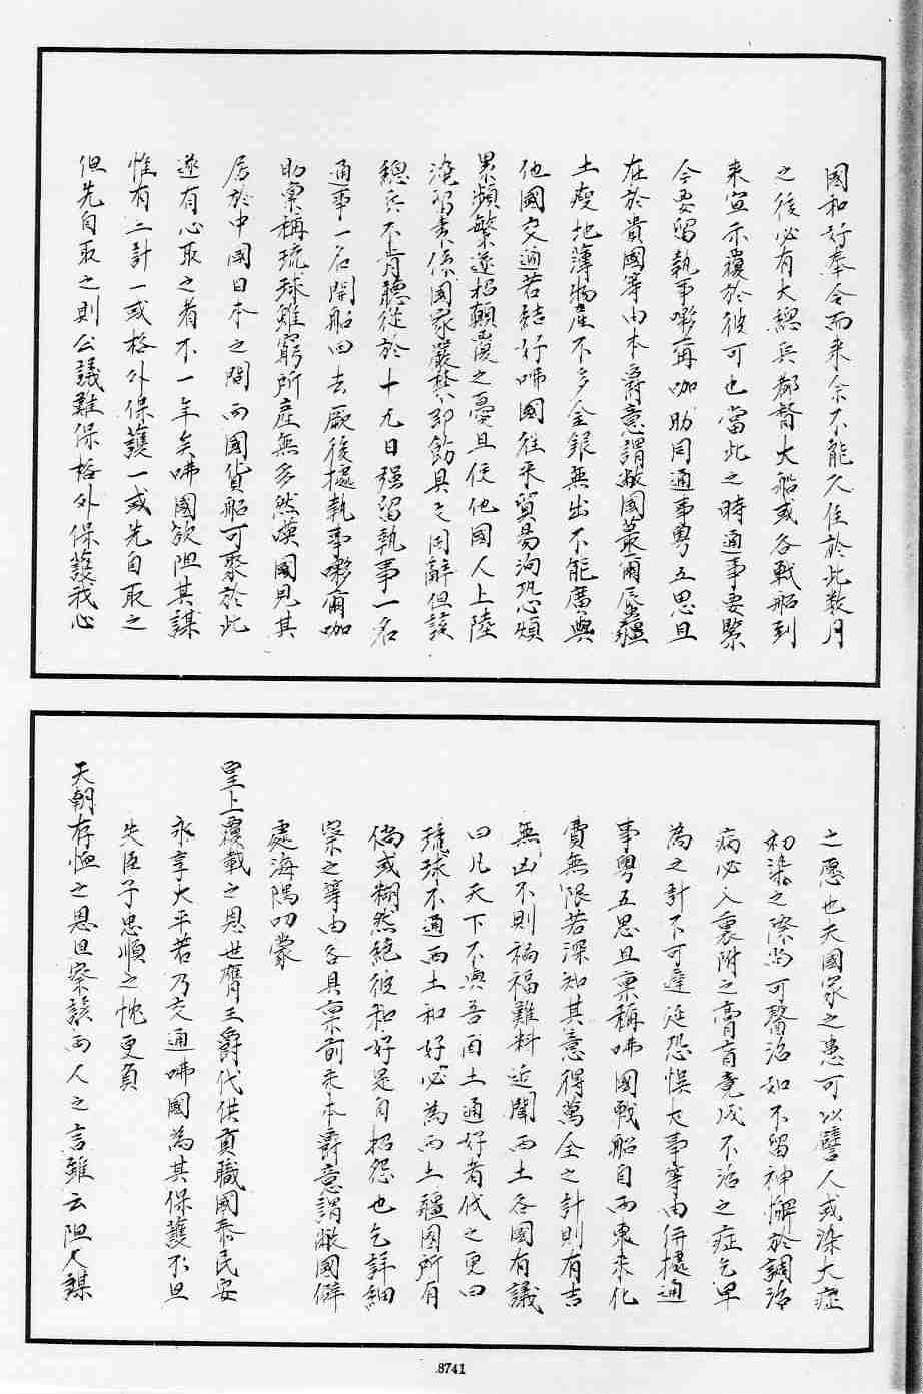 國和好奉令而來余不能久住於此数月
之後必有大總兵都督大船或各戦船到
来宣示覆於彼可也當此之時通事要緊
今要留執事嘞爾咖助同通事粤五思旦
在於貴國等由本爵意謂敝國蕞爾辰疆
土瘦地薄物產不多金銀無出不能廣與
他國交通若結好咈國往來貿易洵恐煩
累頻繁遂招顛覆之憂且使他國人上陸
淹留素係國家嚴禁即飭具之固辭但該
總兵不肯聽從於十九日强留執事一名
通事一名開船回去厥後據執事嘞爾咖
助稟稱琉球雖窮所產無多然暎國見其
居於中國日本之間而國貨船可聚於此
遂有心取之者不一年矣咈國欲阻其謀
惟有二計一或格外保護一或先自取之
但先自取之則公議難保格外保護我心
之愿也夫國家之患可以譬人或染大症
初染之際尚可醫治如不留神懈於調治
病必入裏附之膏肓竟成不治之症乞早
為之計不可遲延恐悞大事等由併據通
事粤五思旦稟稱咈國戰船自西東来化
費無限若深知其意得萬全之計則有吉
無凶不則禍福難料近聞西土各國有議
曰凡天下不與吾西土通好者伐之更曰
琉球不通西土和好必為西土疆國所有
倘或糊然絶彼和好是自招怨也乞詳細
察之等由各具稟前来本爵意謂敝國僻
處海隅叨蒙
皇上覆載之恩世膺王爵代供貢職國泰民安
永享太平若乃交通咈國為其保護不且
失臣子忠順之忱更負
天朝存恤之恩且察該兩人之言雖云阻人謀
8741